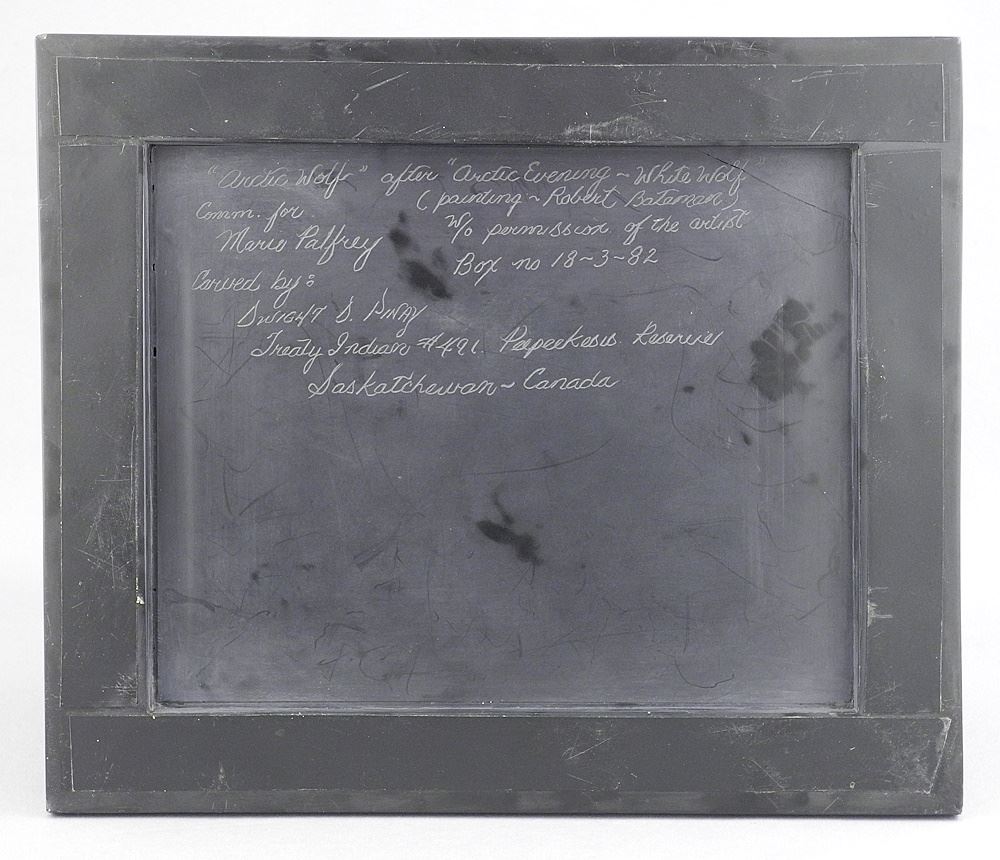 "Arctic Wolf" after "Arctic Evening ~ White Wolf"
(painting ~ Robert Bateman)
Comm. for W/o permission of the artist
Mario Palfrey Box no 18-3-82
Carved by:
Dwight S. Pinay
Treaty Indian #491. Peepeekesis. Reserve
Saskatchewan ~ Canada